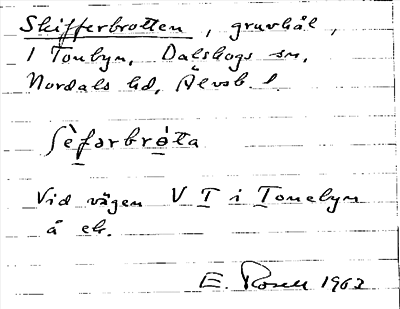 Skifferbrotten, gruvhål,
i Tonbyn, Dalskogs sn,
Nordals hd, Älvsb. l.
ʃèfərbròta
Vid vägen V T i Tonebyn
å ek.
E. Rosell 1962